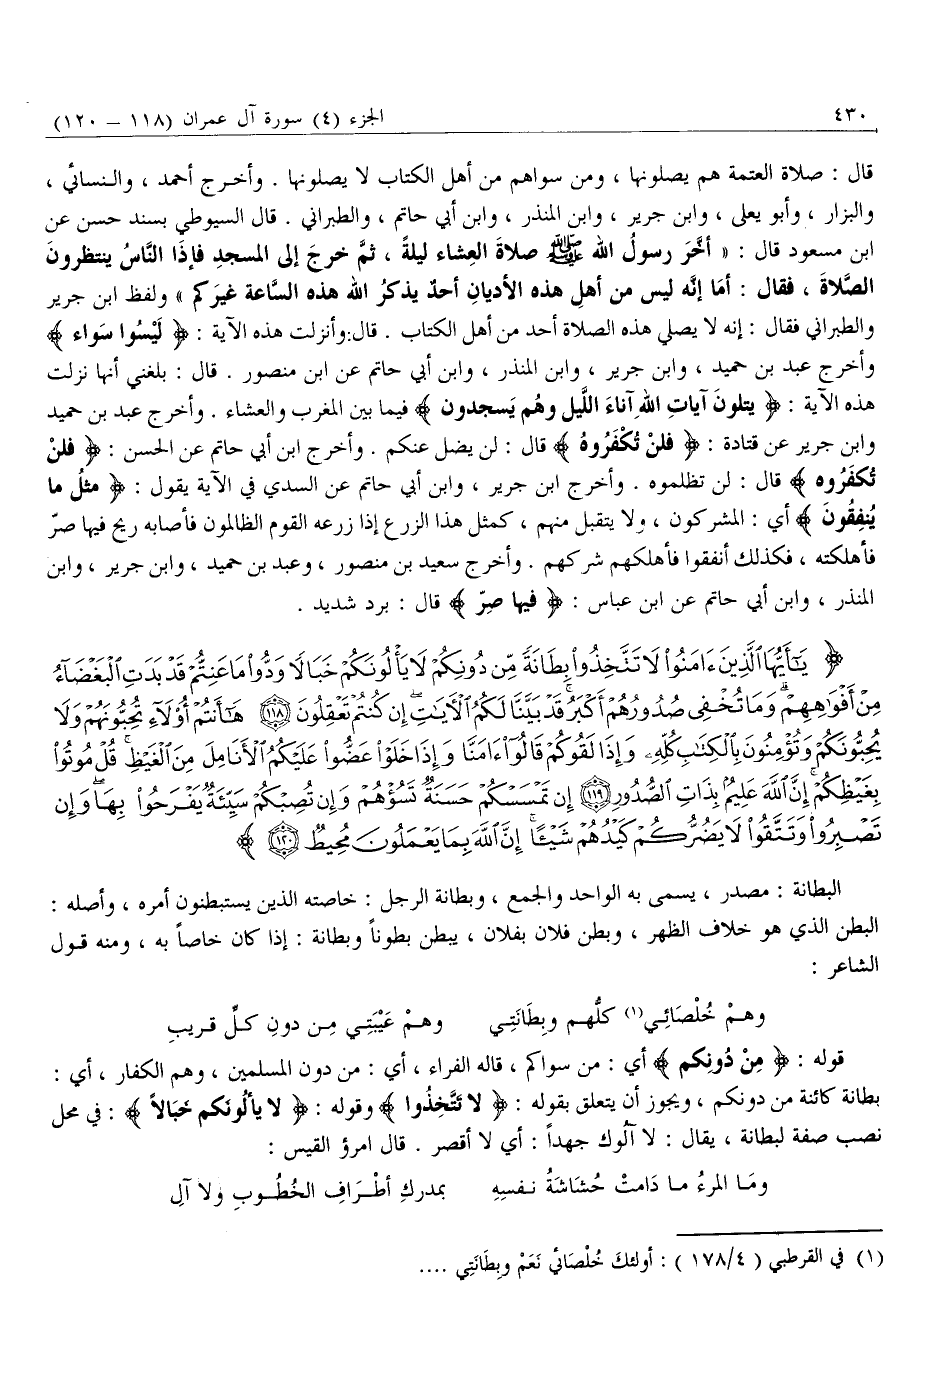 ٤٣٠ الجزء (٤) سورة آل عمران (١١٨ – ١٢٠)
قال : صلاة العتمة هم يصلونها ، ومن سواهم من أهل الكتاب لا يصلونها . وأخرج أحمد ، والنسائي ،
والبزار ، وأبو يعلى ، وابن جرير ، وابن المنذر ، وابن أبي حاتم ، والطبراني . قال السيوطي بسند حسن عن
ابن مسعود قال : « أخَّرَ رسولُ الله ﷺ صلاةَ العِشاء ليلةً ، ثمَّ خرجَ إلى المسجدِ فإذَا النَّاسُ ينتظرونَ
الصَّلاةَ ، فقال : أمَا إنَّه ليس من أهلِ هذه الأديانِ أحدٌ يذكرُ الله هذه السَّاعة غيرَكم » ولفظ ابن جرير
والطبراني فقال : إنه لا يصلي هذه الصلاة أحد من أهل الكتاب . قال:وأنزلت هذه الآية : ﴿ لَيْسُوا سَواء ﴾
وأخرج عبد بن حميد ، وابن جرير ، وابن المنذر ، وابن أبي حاتم عن ابن منصور . قال : بلغني أنها نزلت
هذه الآية : ﴿ يتلونَ آياتِ اللهِ آناءَ اللَّيل وهُم يَسجدون ﴾ فيما بين المغرب والعشاء . وأخرج عبد بن حميد
وابن جرير عن قتادة : ﴿ فلنْ تُكْفَرُوهُ ﴾ قال : لن يضل عنكم . وأخرج ابن أبي حاتم عن الحسن : ﴿ فلنْ
تُكفَرُوه ﴾ قال : لن تظلموه . وأخرج ابن جرير ، وابن أبي حاتم عن السدي في الآية يقول : ﴿ مثلُ ما
يُنفِقُونَ ﴾ أي : المشركون ، ولا يتقبل منهم ، كمثل هذا الزرع إذا زرعه القوم الظالمون فأصابه ريح فيها صرّ
فأهلكته ، فكذلك أنفقوا فأهلكهم شركهم . وأخرج سعيد بن منصور ، وعبد بن حميد ، وابن جرير ، وابن
المنذر ، وابن أبي حاتم عن ابن عباس : ﴿ فيها صِرّ ﴾ قال : برد شديد .
﴿ يَٰٓأَيُّهَا ٱلَّذِينَ ءَامَنُوا۟ لَا تَتَّخِذُوا۟ بِطَانَةً مِّن دُونِكُمْ لَا يَأْلُونَكُمْ خَبَالًا وَدُّوا۟ مَا عَنِتُّمْ قَدْ بَدَتِ ٱلْبَغْضَآءُ
مِنْ أَفْوَٰهِهِمْ وَمَا تُخْفِى صُدُورُهُمْ أَكْبَرُ قَدْ بَيَّنَّا لَكُمُ ٱلْءَايَٰتِ إِن كُنتُمْ تَعْقِلُونَ ١١٨ هَٰٓأَنتُمْ أُو۟لَآءِ تُحِبُّونَهُمْ وَلَا
يُحِبُّونَكُمْ وَتُؤْمِنُونَ بِٱلْكِتَٰبِ كُلِّهِۦ وَإِذَا لَقُوكُمْ قَالُوٓا۟ ءَامَنَّا وَإِذَا خَلَوْا۟ عَضُّوا۟ عَلَيْكُمُ ٱلْأَنَامِلَ مِنَ ٱلْغَيْظِ قُلْ مُوتُوا۟
بِغَيْظِكُمْ إِنَّ ٱللَّهَ عَلِيمٌۢ بِذَاتِ ٱلصُّدُورِ ١١٩ إِن تَمْسَسْكُمْ حَسَنَةٌ تَسُؤْهُمْ وَإِن تُصِبْكُمْ سَيِّئَةٌ يَفْرَحُوا۟ بِهَا وَإِن
تَصْبِرُوا۟ وَتَتَّقُوا۟ لَا يَضُرُّكُمْ كَيْدُهُمْ شَيْـًٔا إِنَّ ٱللَّهَ بِمَا يَعْمَلُونَ مُحِيطٌ ١٢٠ ﴾
البطانة : مصدر ، يسمى به الواحد والجمع ، وبطانة الرجل : خاصته الذين يستبطنون أمره ، وأصله :
البطن الذي هو خلاف الظهر ، وبطن فلان بفلان ، يبطن بطوناً وبطانة : إذا كان خاصاً به ، ومنه قول
الشاعر :
وهمْ خُلصَائِـي(١) كلُّهم وبِطَانَتِي وهـمْ عَيْبَتِـي مِـن دونِ كـلِّ قـريبِ
قوله : ﴿ مِنْ دُونِكم ﴾ أي : من سواكم ، قاله الفراء ، أي : من دون المسلمين ، وهم الكفار ، أي :
بطانة كائنة من دونكم ، ويجوز أن يتعلق بقوله : ﴿ لا تَتَّخِذُوا ﴾ وقوله : ﴿ لا يألُونَكم خَبَالاً ﴾ : في محل
نصب صفة لبطانة ، يقال : لا آلُوك جهداً : أي لا أقصر . قال امرؤ القيس :
ومَـا المرءُ مـا دَامتْ حُشاشَةُ نـفسِهِ بمدركِ أطْـرَافِ الخُطُـوبِ ولا آلِ
(١) في القرطبي ( ١٧٨/٤ ) : أولئكَ خُلْصَائي نَعَمْ وبِطَانَتِي ....